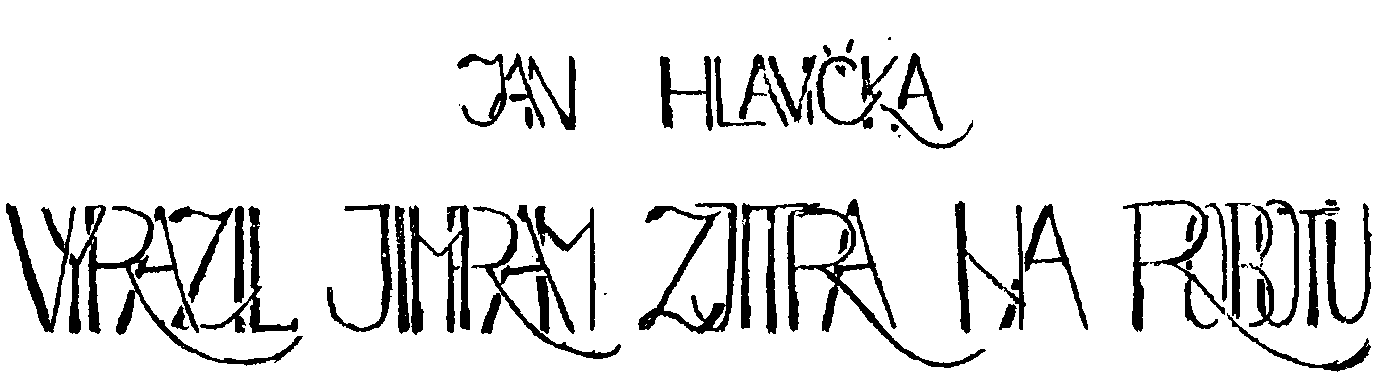 JAN HLAVIČKA
VYRAZIL JIMRAM ZJITRA NA ROBOTU